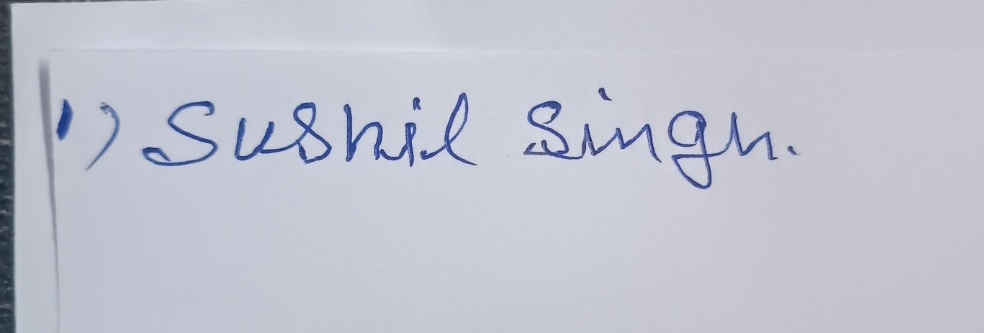 1) Sushil Singh.